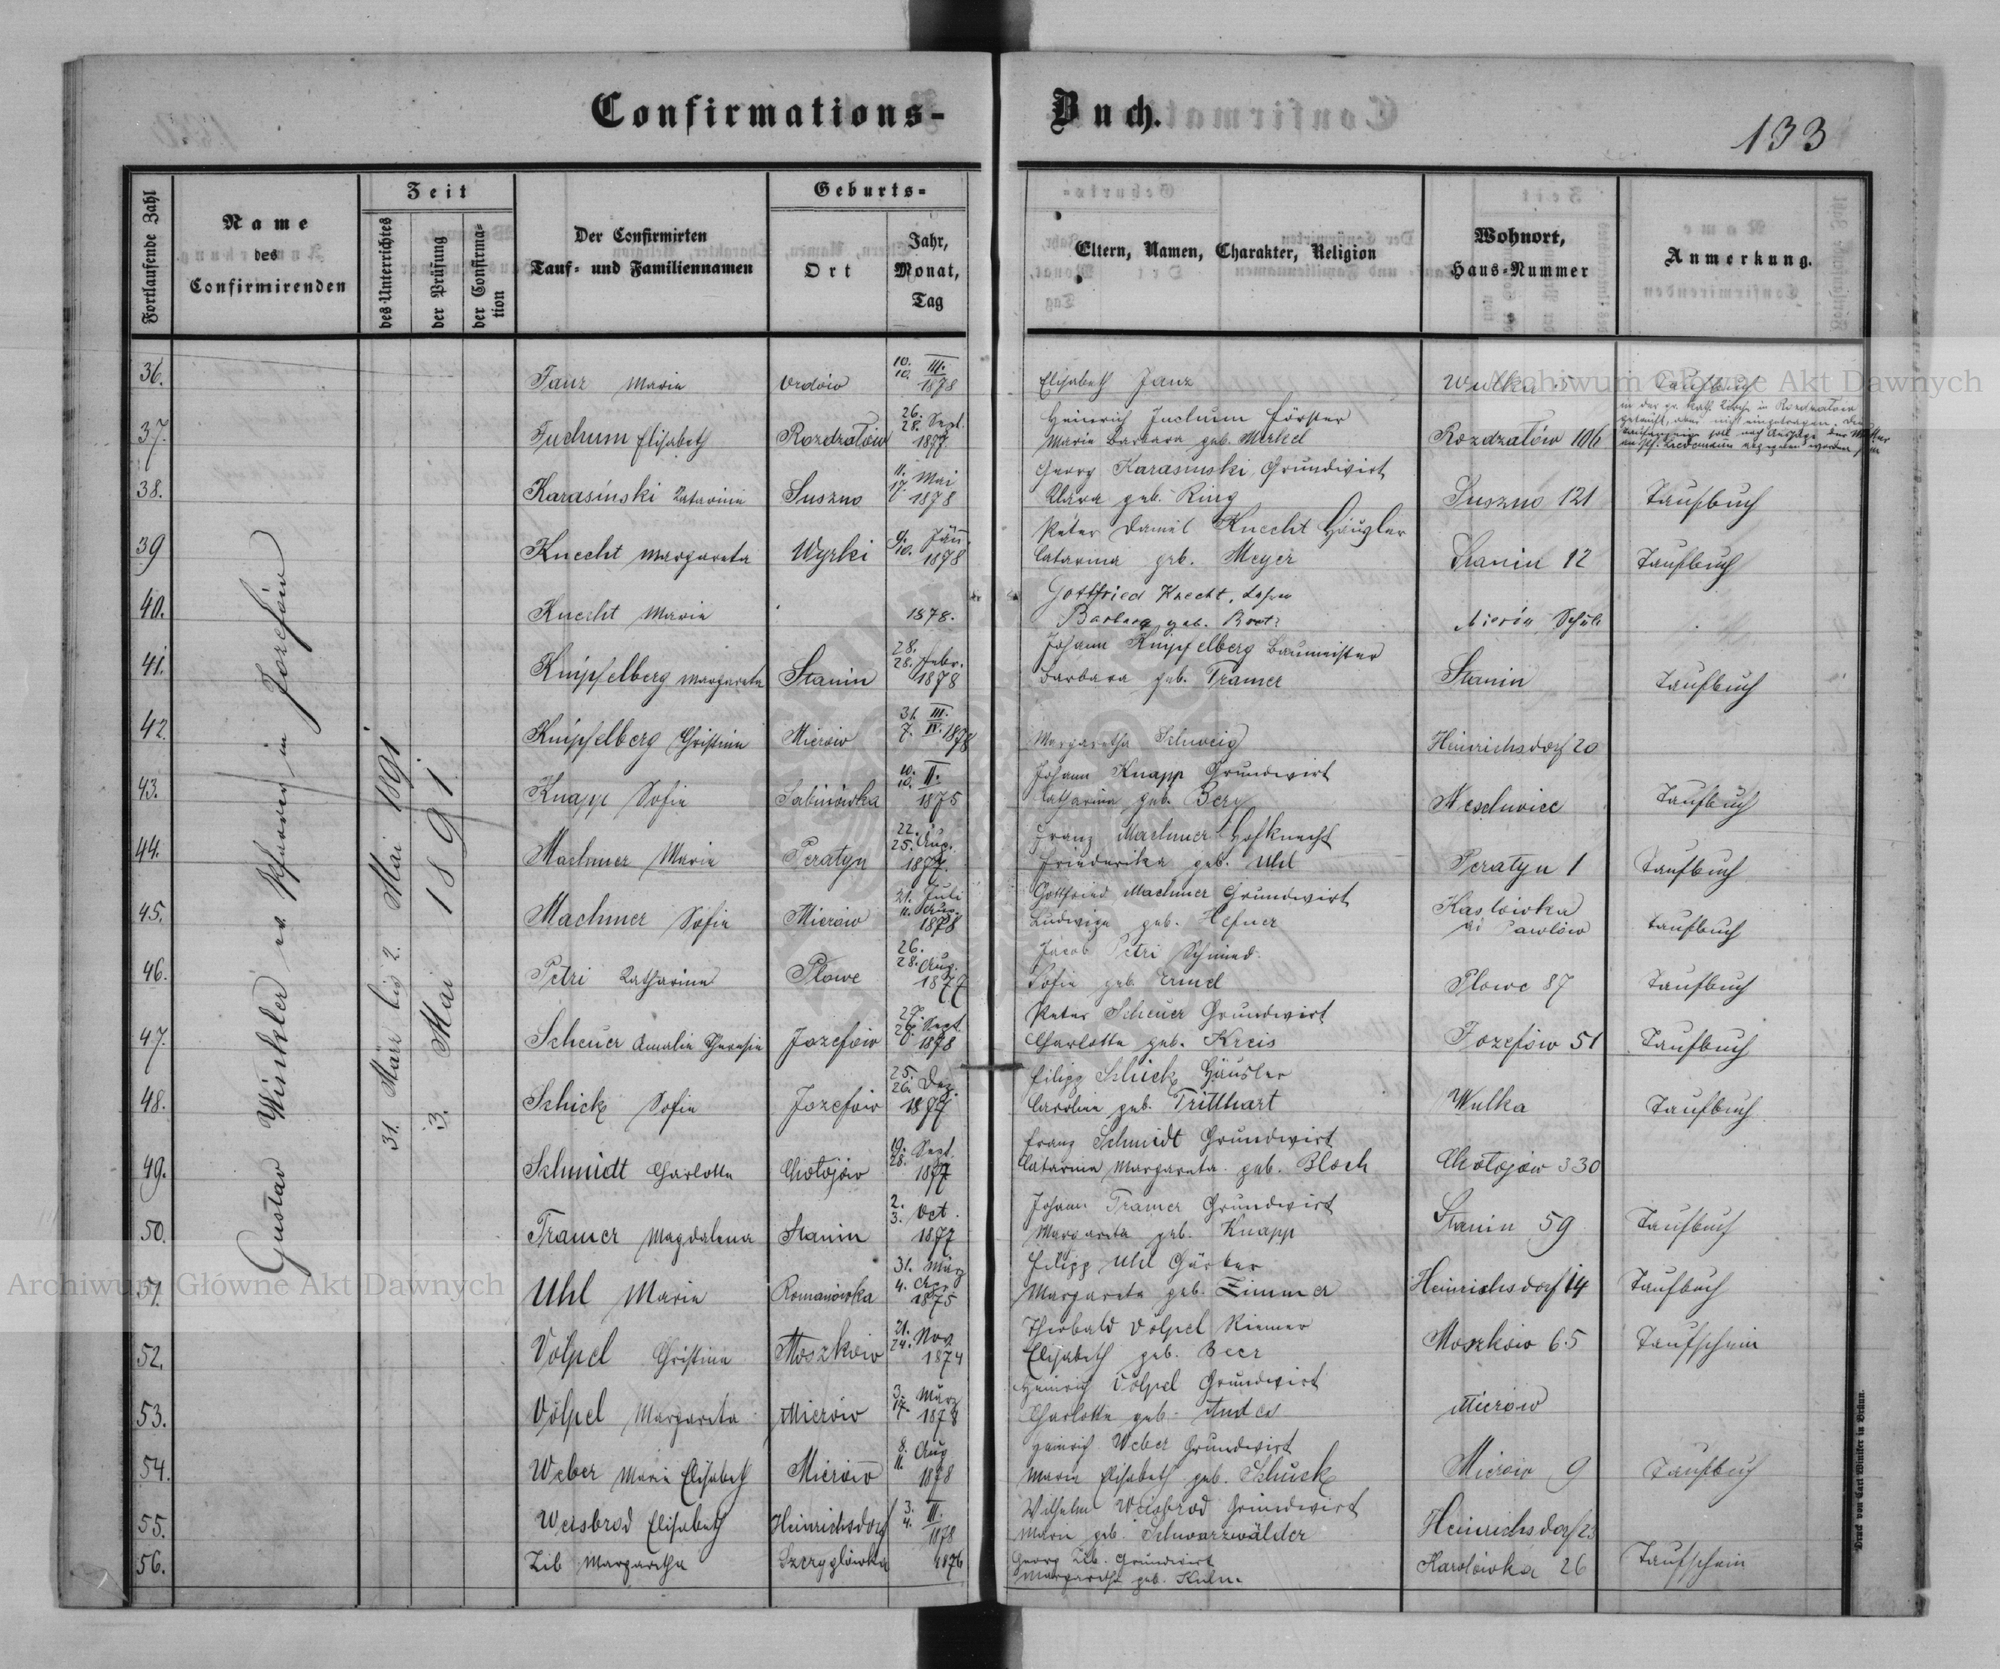 Confirmations-Buch.
133
Fortlaufende Zahl
Name
des
Confirmirenden
Zeit
des Unterrichtes
der Prüfung
der Confirma-
tion
Der Confirmirten
Tauf- und Familiennamen
Geburts-
Ort
Jahr,
Monat,
Tag
Eltern, Namen, Charakter, Religion
Wohnort,
Haus-Nummer
Anmerkung.
Gustav Winkler ev. Pfarrer in Jozefów
31. März bis 2. Mai 1891
3. Mai 1891
36. Janz Maria 10. 10. III. 1878 Elisabeth Janz Wulka Taufbuch
37. Juchum Elisabeth Rozdzałów 26. 28. Sept. 1877 Heinrich Juchum Förster
Maria Barbara geb. Merkel Rozdzałów 106
38. Karasinski Katarina Suszno 11. 17. Mai 1878 Georg Karasinski Grundwirt
Klara geb. Ring Suszno 121 Taufbuch
39 Knecht Margareta Wyrki 9. 10. Jän. 1878 Peter Daniel Knecht Häusler
Catarina geb. Meyer Stanin 12 Taufbuch
40. Knecht Maria 1878. Gottfried Knecht,
Barbara geb.
41. Knipfelberg Margareta Stanin 28. 28. Febr. 1878 Johann Knipfelberg Baumeister
Barbara geb. Tramer Stanin Taufbuch
42. Knipfelberg Christina Mierów 31. III. 7. IV. 1878 Margaretha Schweig Heinrichsdorf 20
43. Knapp Sofia Sabinówka 10. 10. II. 1875 Johann Knapp Grundwirt
Catharina geb. Berg Taufbuch
44. Machmer Maria Peratyn 22. 25. Aug. 1877. Franz Machmer Hofknecht
Friederika geb. Uhl Peratyn 1 Taufbuch
45. Machmer Sofia Mierów 21. Juli 11. Aug. 1878 Gottfried Machmer Grundwirt
Ludwiga geb. Hefner Pawlów Taufbuch
46. Petri Katharina Płowe 26. 28. Aug. 1877 Jacob Petri Schmied.
Sofia geb. Płowe 87 Taufbuch
47. Scheuer Amalia Theresia Jozefów 27. 29. Sept. 1878 Peter Scheuer Grundwirt
Charlotta geb. Kreis Jozefów 51 Taufbuch
48. Schick Sofia Jozefów 25. 26. Dez. 1877 Filipp Schick Häusler
Carolina geb. Tritthart Wulka Taufbuch
49. Schmidt Charlotta Chołojów 19. 28. Sept. 1877 Franz Schmidt Grundwirt
Catarina Margareta geb. Bloch Chołojów 330
50. Tramer Magdalena Stanin 2. 3. Oct. 1877 Johann Tramer Grundwirt
Margareta geb. Knapp Stanin 59 Taufbuch
51. Uhl Maria Romanówka 31. März 4. Apr. 1875 Filipp Uhl Gärber
Margareta geb. Zimmer Heinrichsdorf 14 Taufbuch
52. Völpel Christina Moszków 21. 24. Nov. 1874 Theobald Völpel Riemer
Elisabeth geb. Beer Moszków 65 Taufschein
53. Völpel Margareta Mierów 3. 17. März 1878 Heinrich Völpel Grundwirt
Charlotta geb. Andes Mierów
54. Weber Maria Elisabeth Mierów 8. 11. Aug 1878 Heinrich Weber Grundwirt
Maria Elisabeth geb. Schuck Mierów 9 Taufbuch
55. Weisbrod Elisabeth Heinrichsdorf 3. 4. III. 1878 Wilhelm Weisbrod Grundwirt
Maria geb. Schwarzwälder Heinrichsdorf 23
56. Zib Margaretha Szczyglówka 1876 Georg Zib. Grundwirt
Margaretha geb. Kuhn Karolówka 26 Taufschein
Druck von Carl Winiker in Brünn.
Archiwum Główne Akt Dawnych
Archiwum Główne Akt Dawnych